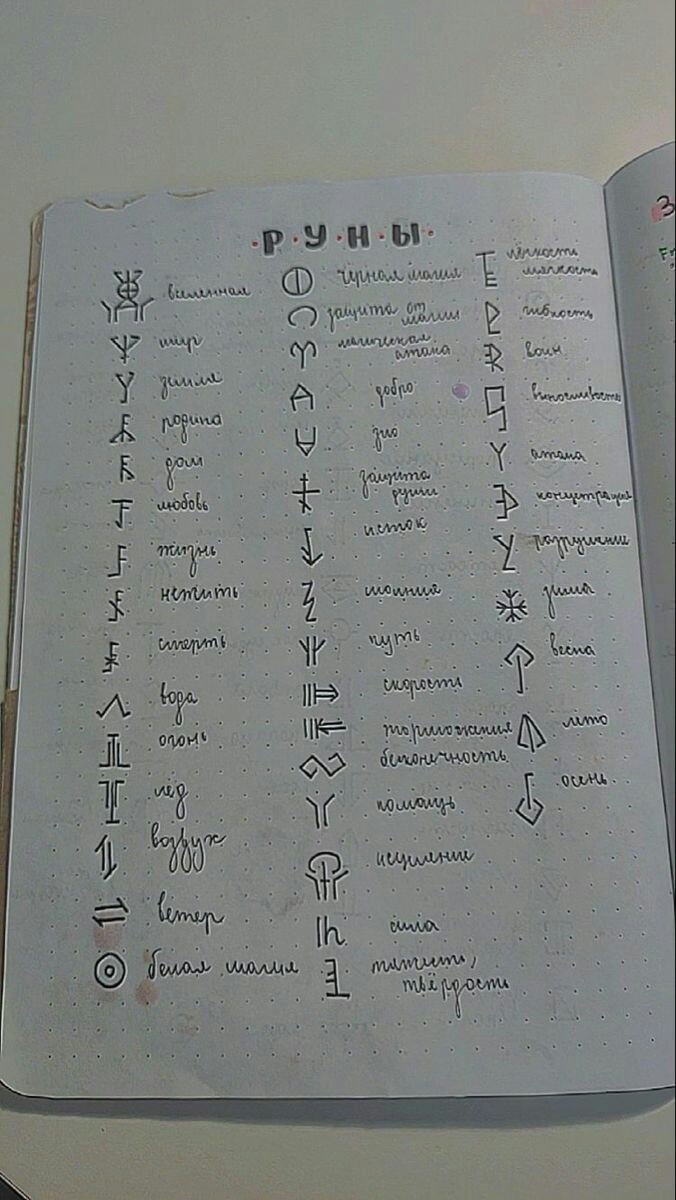 ·Р·У·Н·Ы·
вселенная
мир
земля
родина
дом
любовь
жизнь
нежить
смерть
вода
огонь
лёд
воздух
ветер
белая магия
чёрная магия
защита от
магии
магическая
атака
добро
зло
защита
души
исток
молния
путь
скорость
торможения
бесконечность
помощь
исцеление
сила
тяжесть,
твёрдость
лёгкость
мягкость
гибкость
воин
выносливость
атака
концетрация
разрушение
зима
весна
лето
осень
З